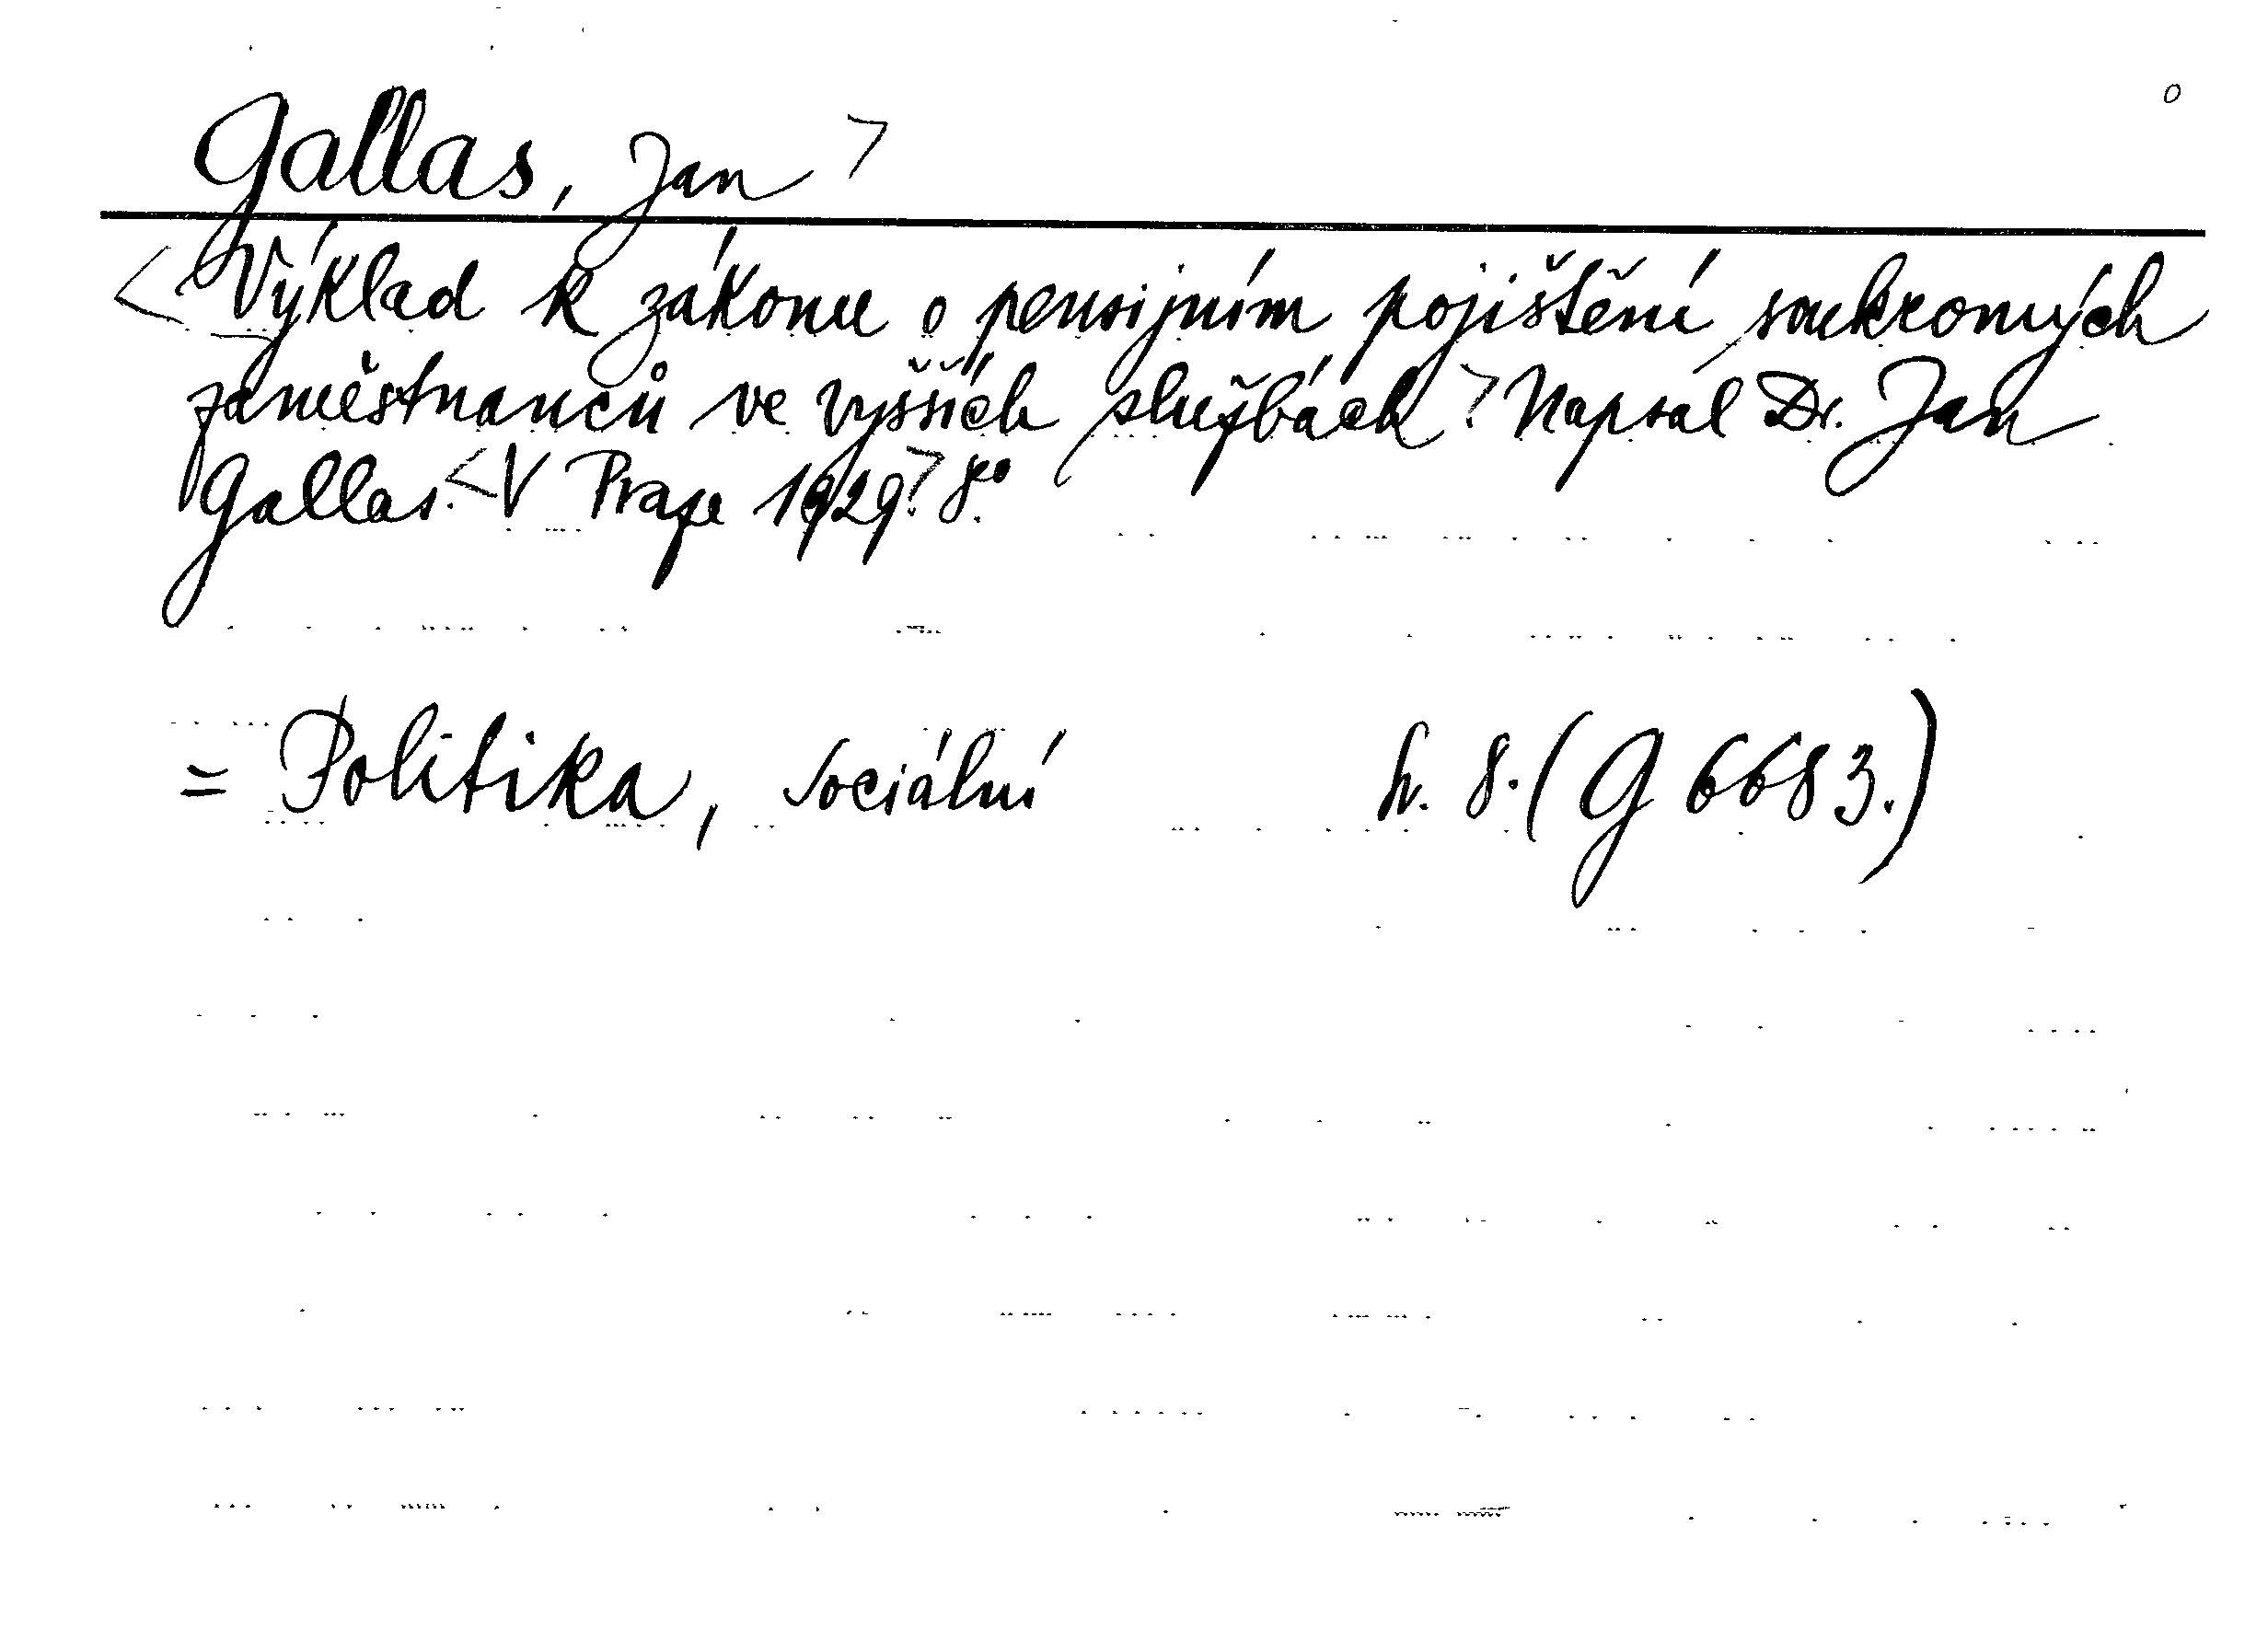 Gallas, Jan >
< Výklad k zákonu o pensijním pojištění soukromých
zaměstnanců ve vyšších službách > Napsal Dr. Jan
Gallas. < V Praze 1929 > 8º.
= Politika, sociální h. 8. (G 6683.)